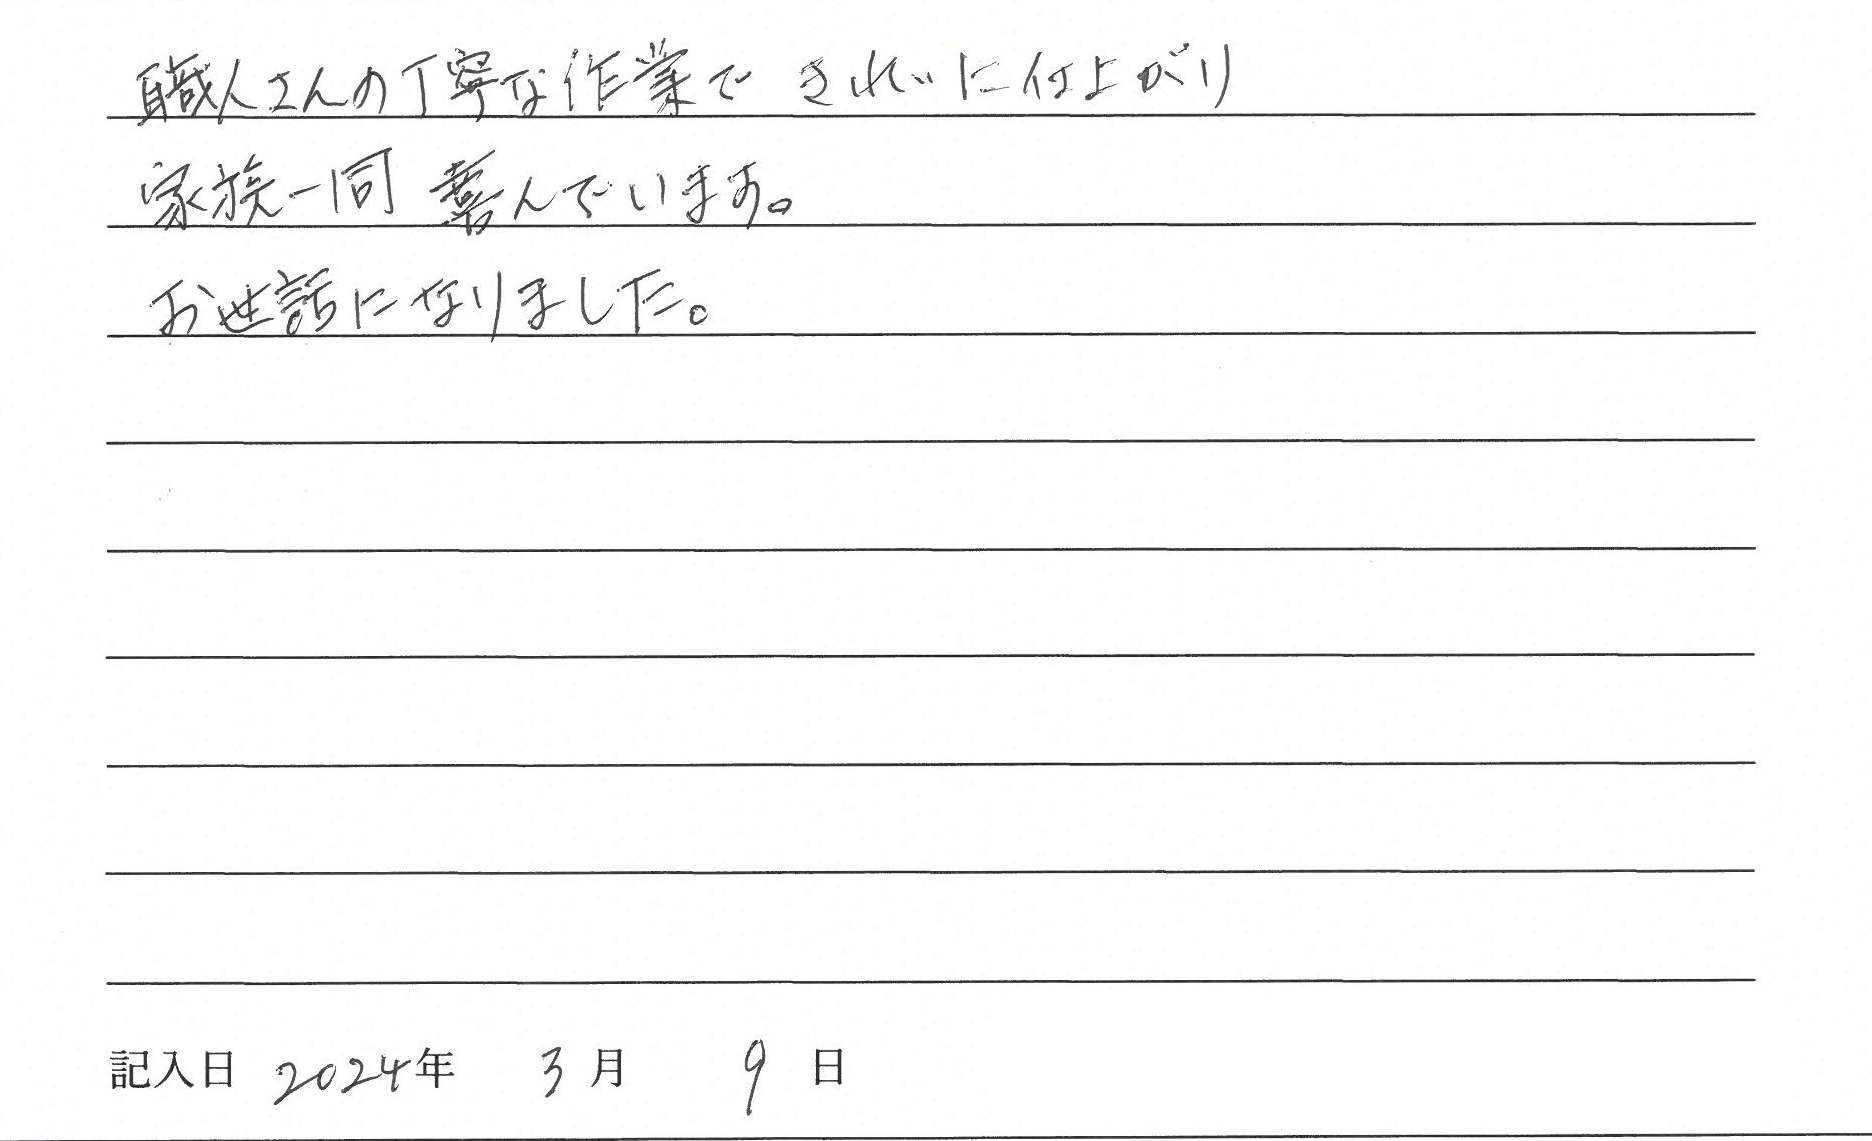 職人さんの丁寧な作業で きれいに仕上がり
家族一同 喜んでいます。
お世話になりました。
記入日 2024年 3月 9日